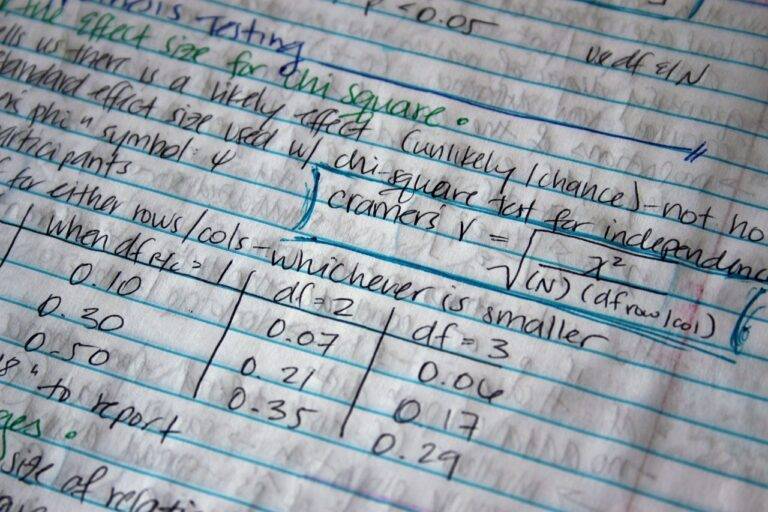 p <0.05
Testing
effect size for chi square.
us there is a likely effect (unlikely/chance)-not no
standard effect size used w/ chi-square test for independence
phi" symbol: φ
participants
cramers V = √ x² / (N) (df row/col)
for either rows/cols-whichever is smaller
when df r/c = 1 df=2 df=3
0.10 0.07 0.06
0.30 0.21 0.17
0.50 0.35 0.29
" to report
size of